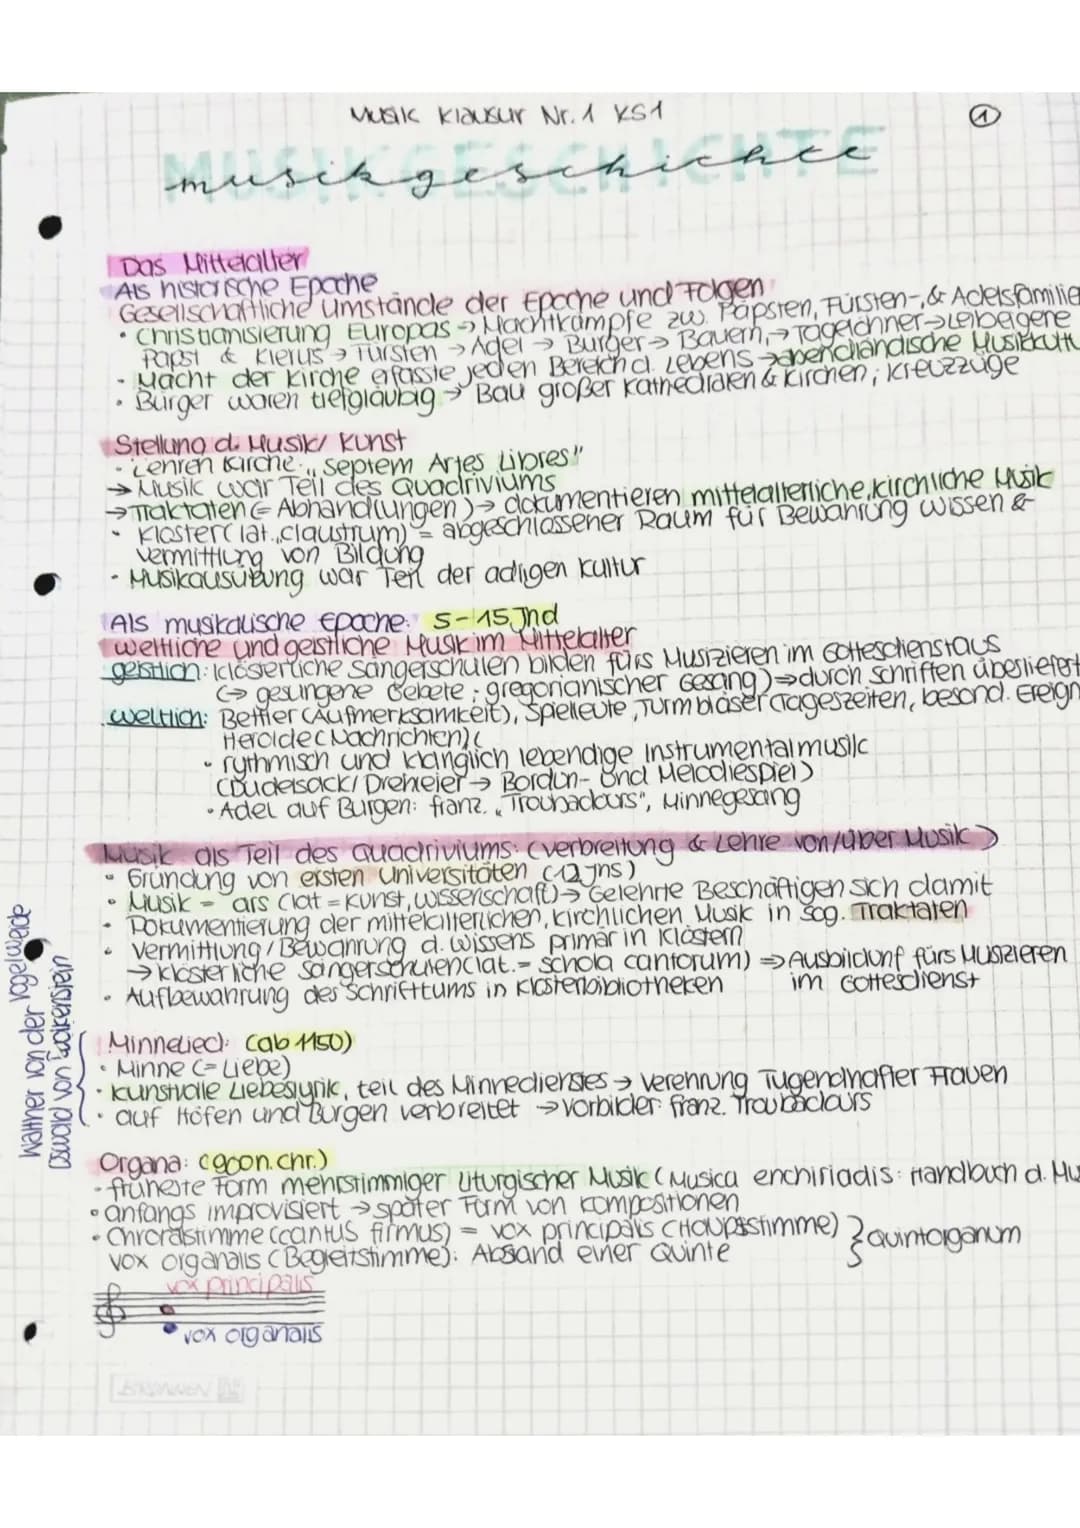 Musik Klausur Nr. 1 KS1
①
MUSIKGESCHICHTE
musikgeschichte
Das Mittelalter
Als historische Epoche
Gesellschaftliche Umstände der Epoche und Folgen
• Christianisierung Europas → Machtkämpfe zw. Päpsten, Fürsten-, & Adelsfamilie
Papst & Klerus → Fürsten → Adel → Bürger → Bauern, → Tagelöhner → Leibeigene
• Macht der Kirche erfasste jeden Bereich d. Lebens → abendländische Musikkultu
• Bürger waren tiefgläubig → Bau großer Kathedralen & Kirchen, Kreuzzüge
Stellung d. Musik/ Kunst
• Lehren Kirche: „Septem Artes Libres"
→ Musik war Teil des Quadriviums
→ Traktaten (= Abhandlungen) → dokumentieren mittelalterliche, kirchliche Musik
• Kloster (lat. „claustrum) = abgeschlossener Raum für Bewahrung wissen &
vermittlung von Bildung
• Musikausübung war Teil der adligen Kultur
Als musikalische Epoche: 5-15 Jhd
weltliche und geistliche Musik im Mittelalter
geistlich: klösterliche Sängerschulen bilden fürs Musizieren im Gottesdienst aus
(→ gesungene Gebete; gregorianischer Gesang) ⇒ durch schriften überliefert
weltlich: Bettler (Aufmerksamkeit), Spielleute, Turmbläser (Tageszeiten, besond. Ereign
Herolde (Nachrichten) (
• rythmisch und klanglich lebendige Instrumentalmusik
(Dudelsack/ Drehleier → Bordun- und Melodiespiel)
• Adel auf Burgen: franz. „Troubadours", Minnegesang
Musik als Teil des Quadriviums: (verbreitung & Lehre von/über Musik)
• Gründung von ersten Universitäten (12 Jhs)
• Musik = ars (lat = Kunst, wissenschaft) → Gelehrte Beschäftigen sich damit
• Dokumentierung der mittelalterlichen, kirchlichen Musik in sog. Traktaten
• Vermittlung / Bewahrung d. wissens primär in Klöstern
→ klösterliche Sängerschulen (lat. = schola cantorum) ⇒ Ausbildunf fürs Musizieren
im Gottesdienst
• Aufbewahrung des Schrifttums in Klosterbibliotheken
Walther von der Vogelweide
Oswald von Wolkenstein
Minnelied: (ab 1150)
• Minne (= Liebe)
• kunstvolle Liebeslyrik, teil des Minnedienstes → Verehrung Tugendhafter Frauen
• auf Höfen und Burgen verbreitet → vorbilder: franz. Troubadours
Organa: (900n.chr.)
• früheste Form mehrstimmiger Liturgischer Musik (Musica enchiriadis: Handbuch d. Mu
• anfangs improvisiert → später Form von Kompositionen
• Chroralstimme (cantus firmus) = vox principalis (Haupsstimme)
vox organalis (Begleitstimme): Absand einer Quinte
} Quintorganum
vox principalis
vox organalis
BRUNNEN